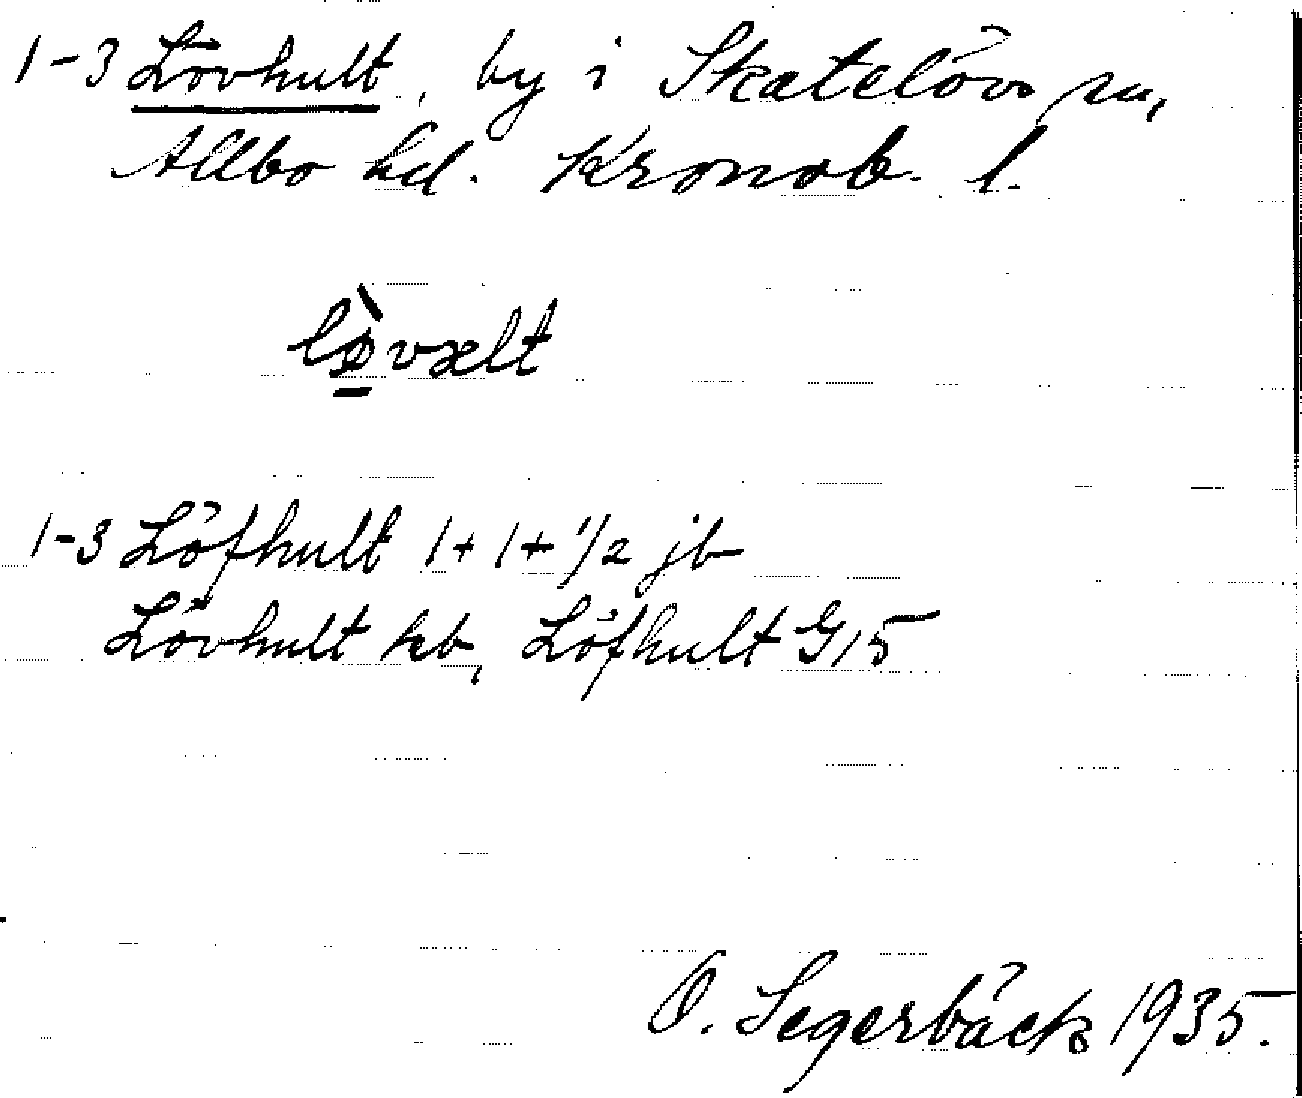 1-3 Lövhult, by i Skatelövs sn,
Allbo hd. Kronob. l.
lø̀vælt
1-3 Löfhult 1+1+1/2 jb
Lövhult kb, Löfhult G15
O. Segerbäck 1935.